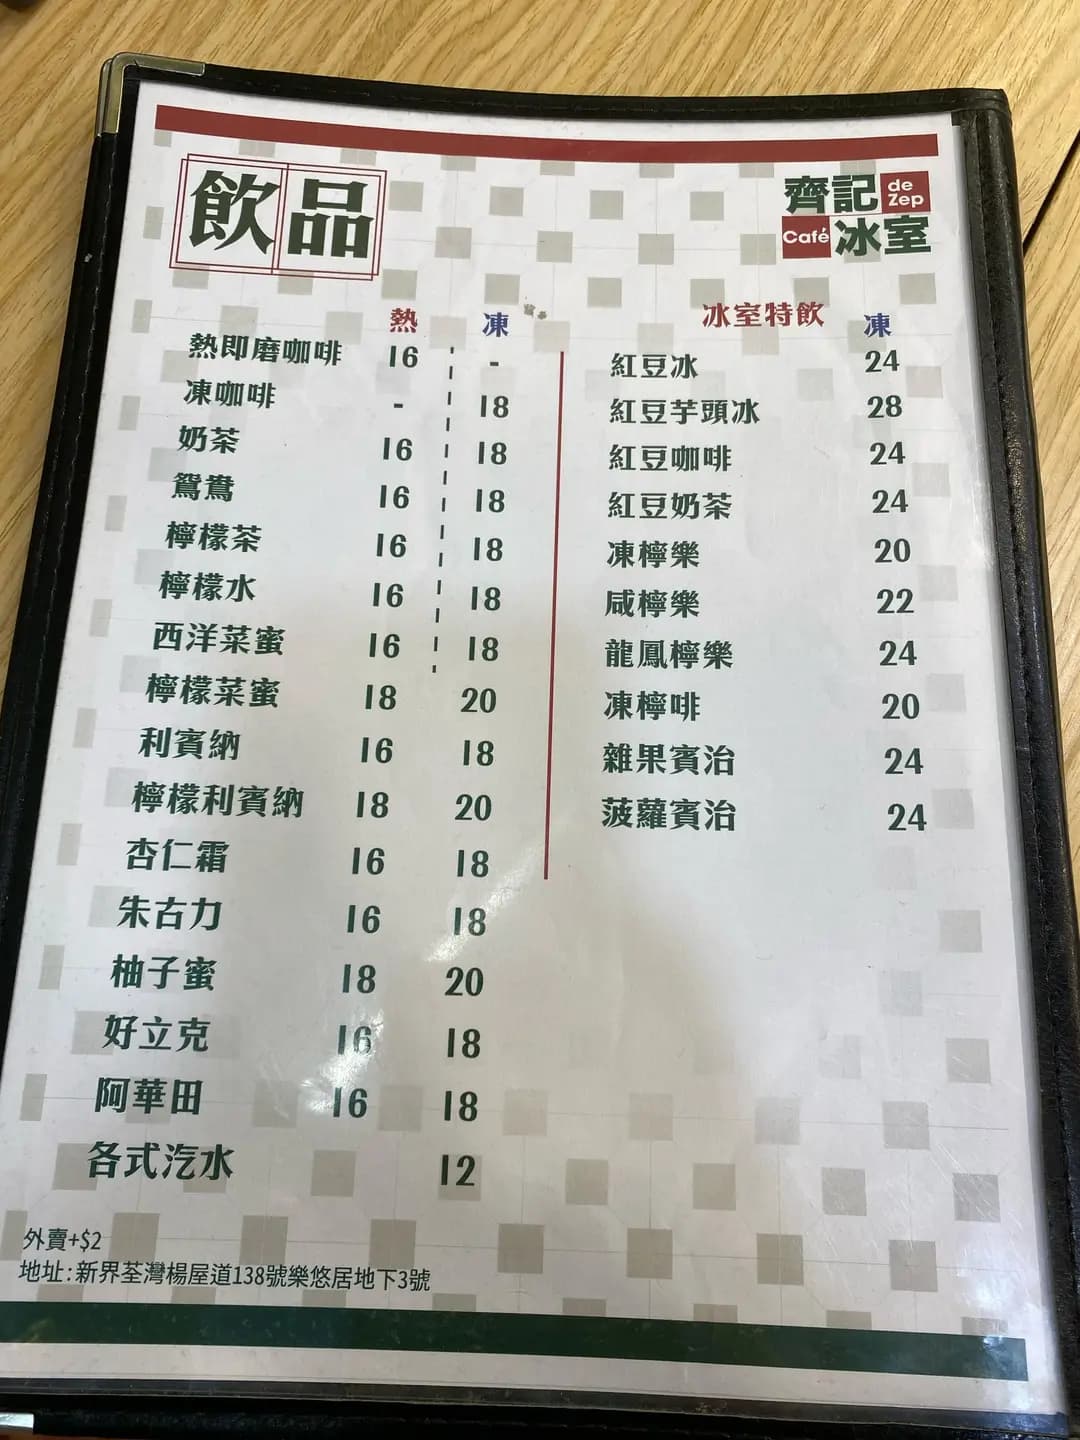 飲品
齊記 de Zep
Café 冰室
熱 凍
熱即磨咖啡 16 -
凍咖啡 - 18
奶茶 16 18
鴛鴦 16 18
檸檬茶 16 18
檸檬水 16 18
西洋菜蜜 16 18
檸檬菜蜜 18 20
利賓納 16 18
檸檬利賓納 18 20
杏仁霜 16 18
朱古力 16 18
柚子蜜 18 20
好立克 16 18
阿華田 16 18
各式汽水 12
冰室特飲 凍
紅豆冰 24
紅豆芋頭冰 28
紅豆咖啡 24
紅豆奶茶 24
凍檸樂 20
咸檸樂 22
龍鳳檸樂 24
凍檸啡 20
雜果賓治 24
菠蘿賓治 24
外賣+$2
地址:新界荃灣楊屋道138號樂悠居地下3號